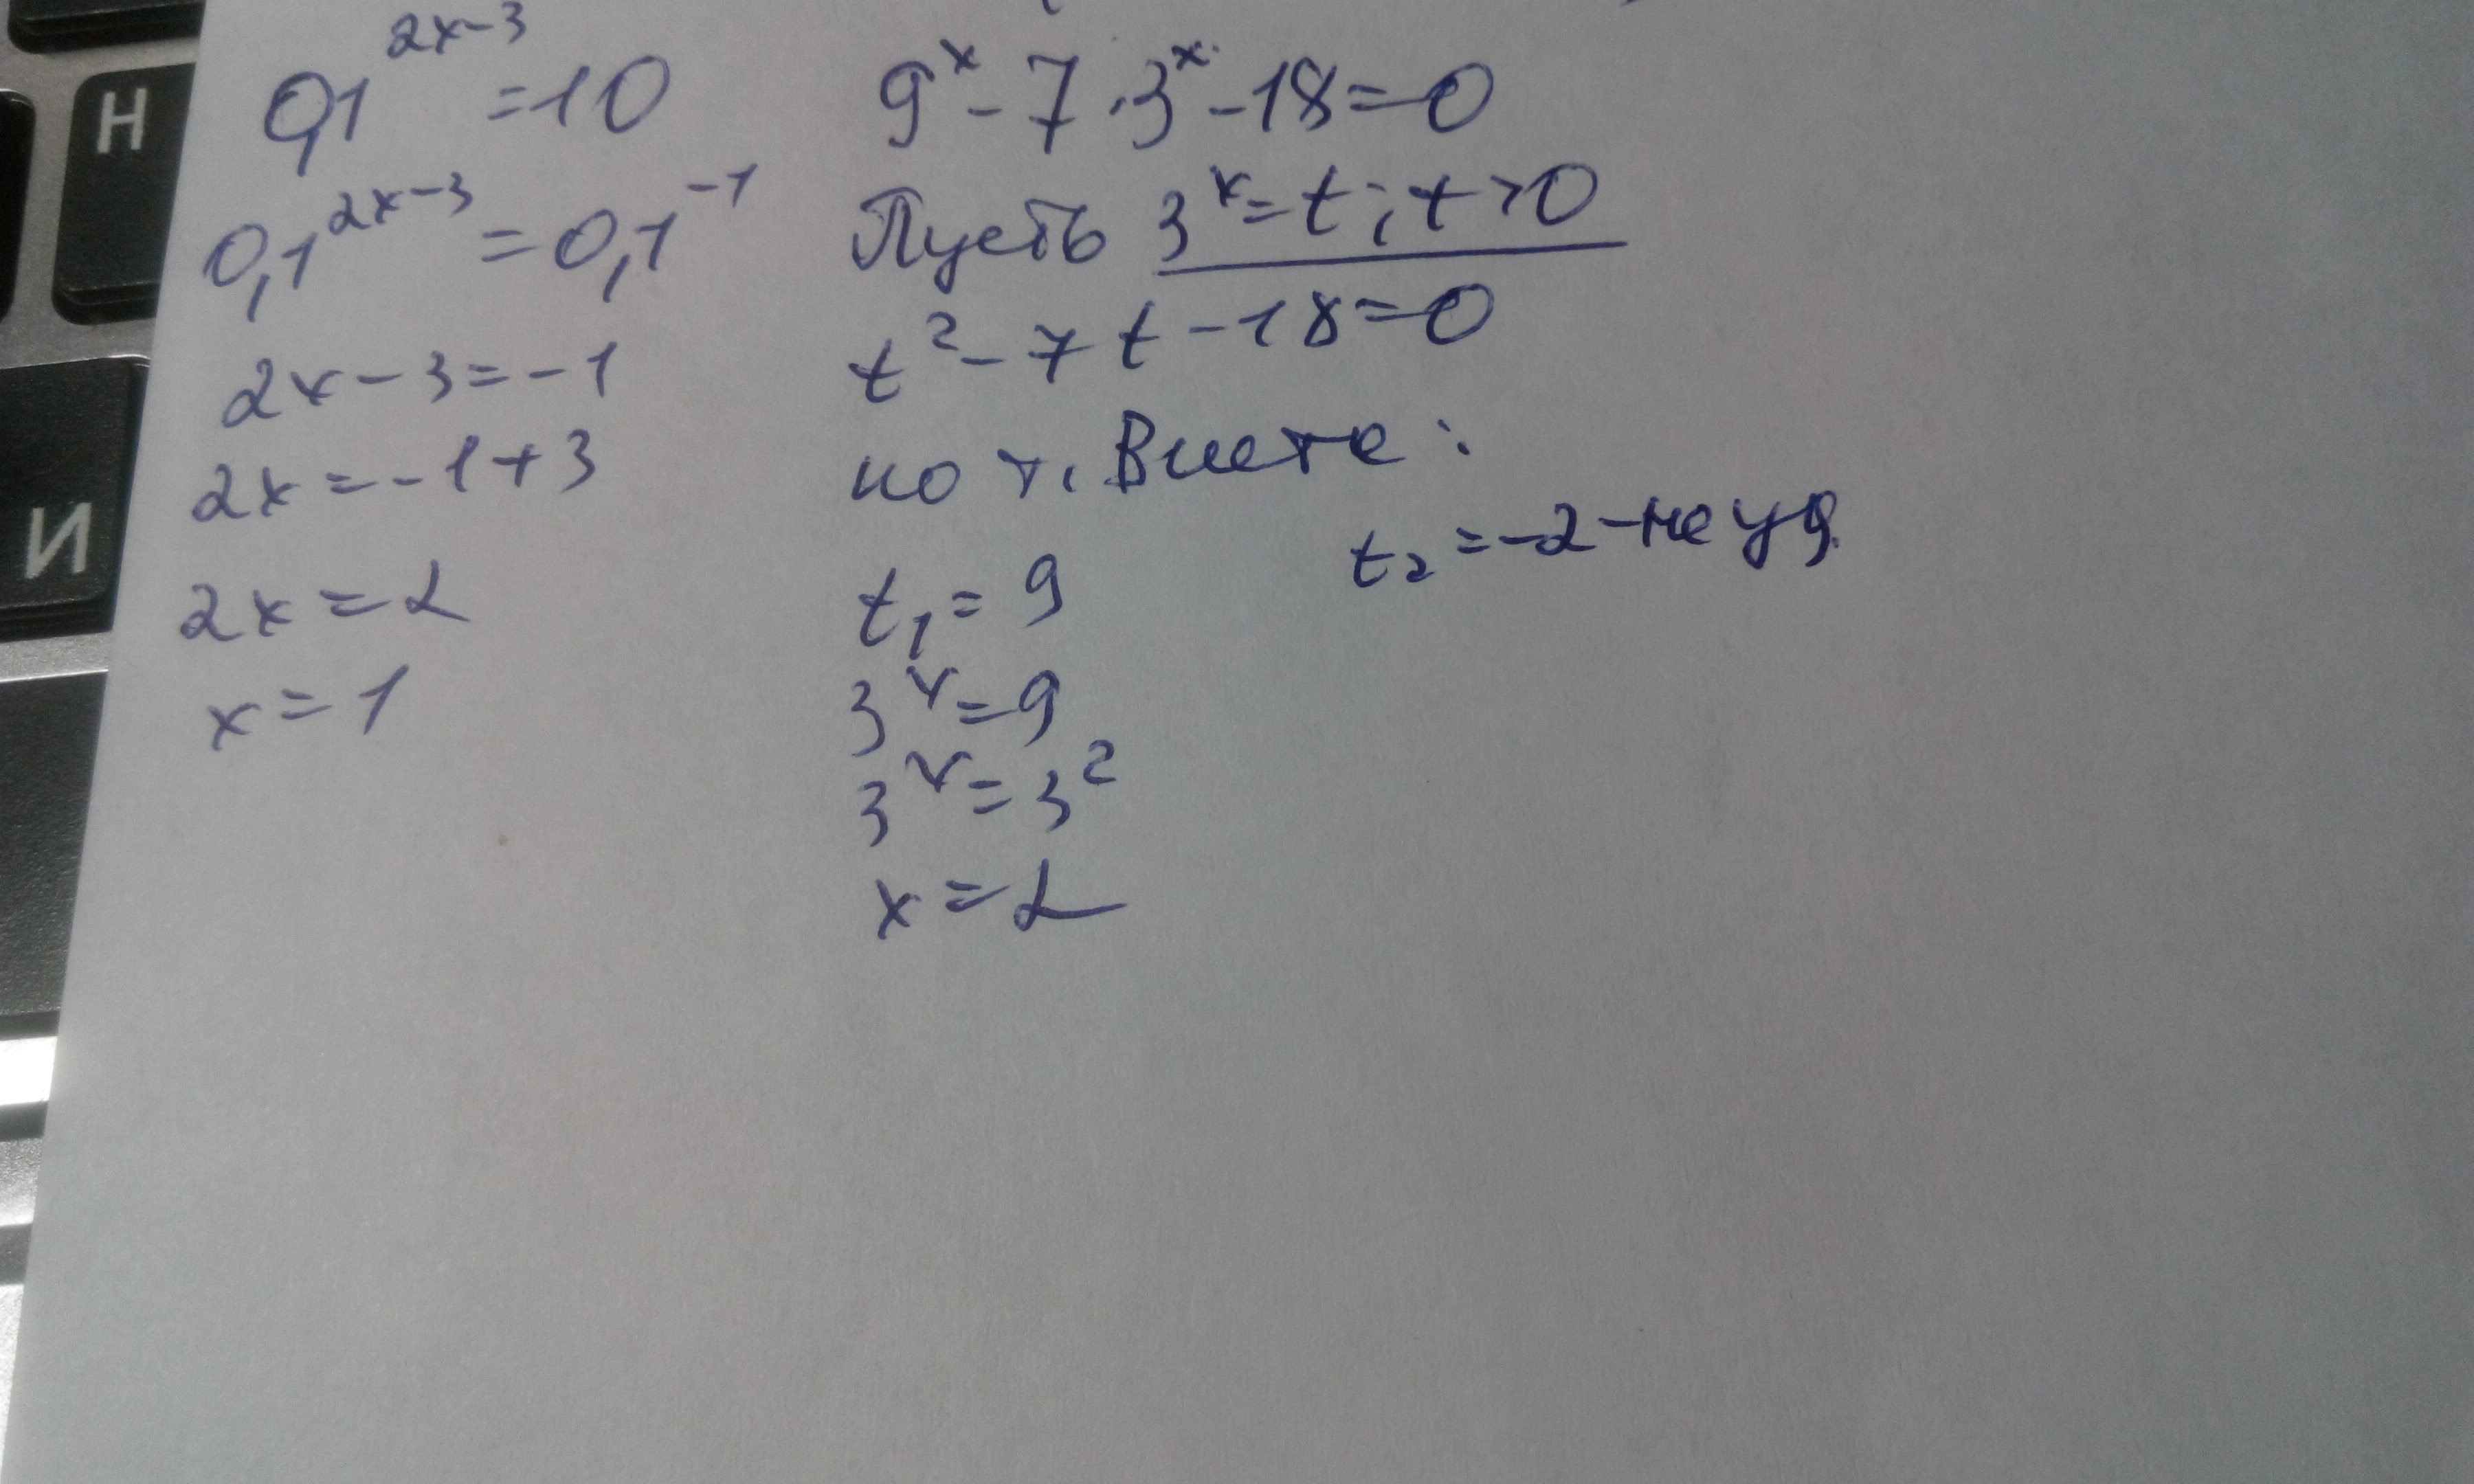 Н
И
0,1^{2x-3} = 10
0,1^{2x-3} = 0,1^{-1}
2x - 3 = -1
2x = -1 + 3
2x = 2
x = 1
9^x - 7 · 3^x - 18 = 0
Пусть 3^x = t; t > 0
t^2 - 7t - 18 = 0
по т. Виета:
t_1 = 9 t_2 = -2 - не уд.
3^x = 9
3^x = 3^2
x = 2